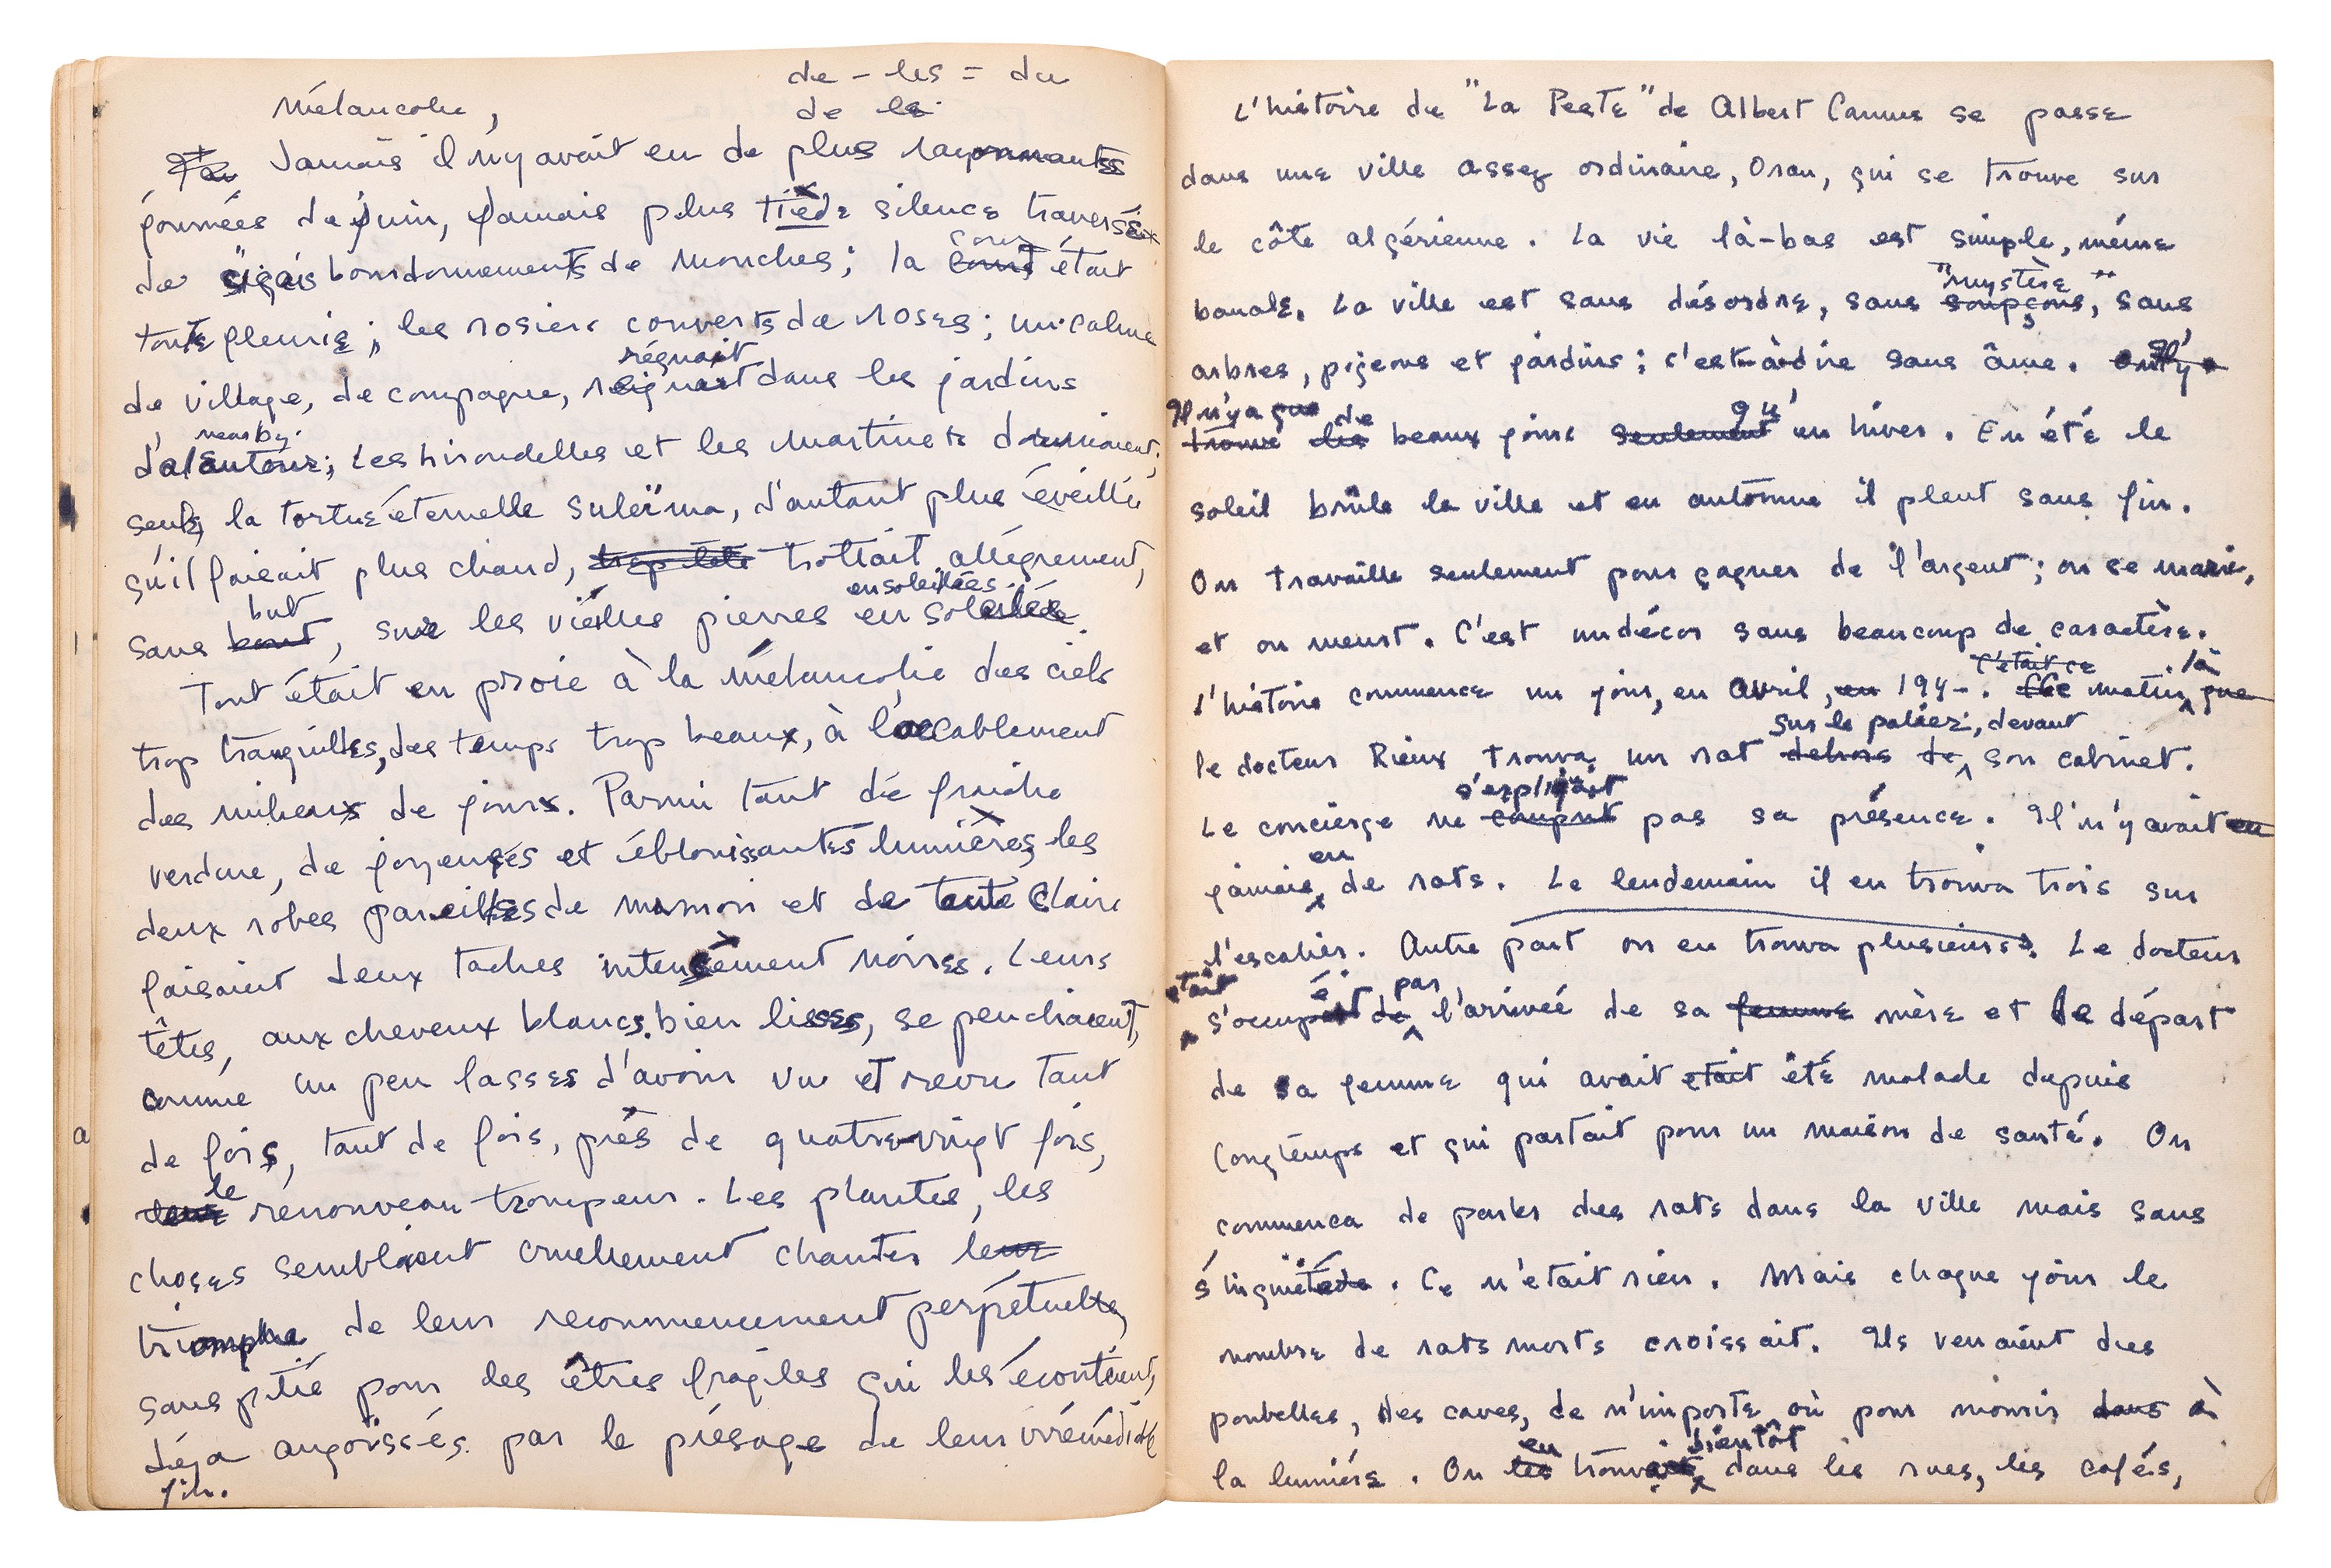 de - les = du
de la
Mélancolie,
Jamais il n'y avait eu de plus rayonnantes
journées de juin, jamais plus tiède silence traversé
de si gais bourdonnements de mouches; la cour était
toute fleurie; les rosiers couverts de roses; un calme
de village, de campagne, régnait dans les jardins
nearby
d'alentour; Les hirondelles et les martinets dormaient;
seule, la tortue éternelle Suleïma, d'autant plus éveillée
qu'il faisait plus chaud, trottait allégrement,
sans but, sur les vieilles pierres ensoleillées.
Tout était en proie à la mélancolie des ciels
trop tranquilles, des temps trop beaux, à l'accablement
des milieux de jours. Parmi tant de fraiche
verdure, de joyeuses et éblouissantes lumières, les
deux robes pareilles de maman et de tante Claire
faisaient deux taches intensément noires. Leurs
têtes, aux cheveux blancs bien lisses, se penchaient,
comme un peu lasses d'avoir vu et revu tant
de fois, tant de fois, près de quatre-vingt fois,
le renouveau trompeur. Les plantes, les
choses semblaient cruellement chanter le
triomphe de leur recommencement perpétuel,
sans pitié pour les êtres fragiles qui les écoutaient,
déja angoissés par le présage de leur irrémédiable
fin.
L'histoire de "La Peste" de Albert Camus se passe
dans une ville assez ordinaire, Oran, qui se trouve sur
le côte algérienne. La vie là-bas est simple, même
banale. La ville est sans désordre, sans "mystère", sans
arbres, pigeons et jardins; c'est-à-dire sans âme.
Il n'y a de beaux jours qu'en hiver. En été le
soleil brûle la ville et en automne il pleut sans fin.
On travaille seulement pour gagner de l'argent; on se marie,
et on meurt. C'est un décor sans beaucoup de caractère.
L'histoire commence un jour, en avril, 194-. Ce matin, là
le docteur Rieux trouva un rat sur le palier, devant son cabinet.
Le concierge ne s'expliquait pas sa présence. Il n'y avait
jamais eu de rats. Le lendemain il en trouva trois sur
l'escalier. Autre part on en trouva plusieurs. Le docteur
était occupé par l'arrivée de sa mère et le départ
de sa femme qui avait été malade depuis
longtemps et qui partait pour un maison de santé. On
commenca de parler des rats dans la ville mais sans
s'inquiéter. Ce n'etait rien. Mais chaque jour le
nombre de rats morts croissait. Ils venaient des
poubelles, des caves, de n'importe où pour mourir à
la lumière. On en trouva bientôt dans les rues, les cafés,